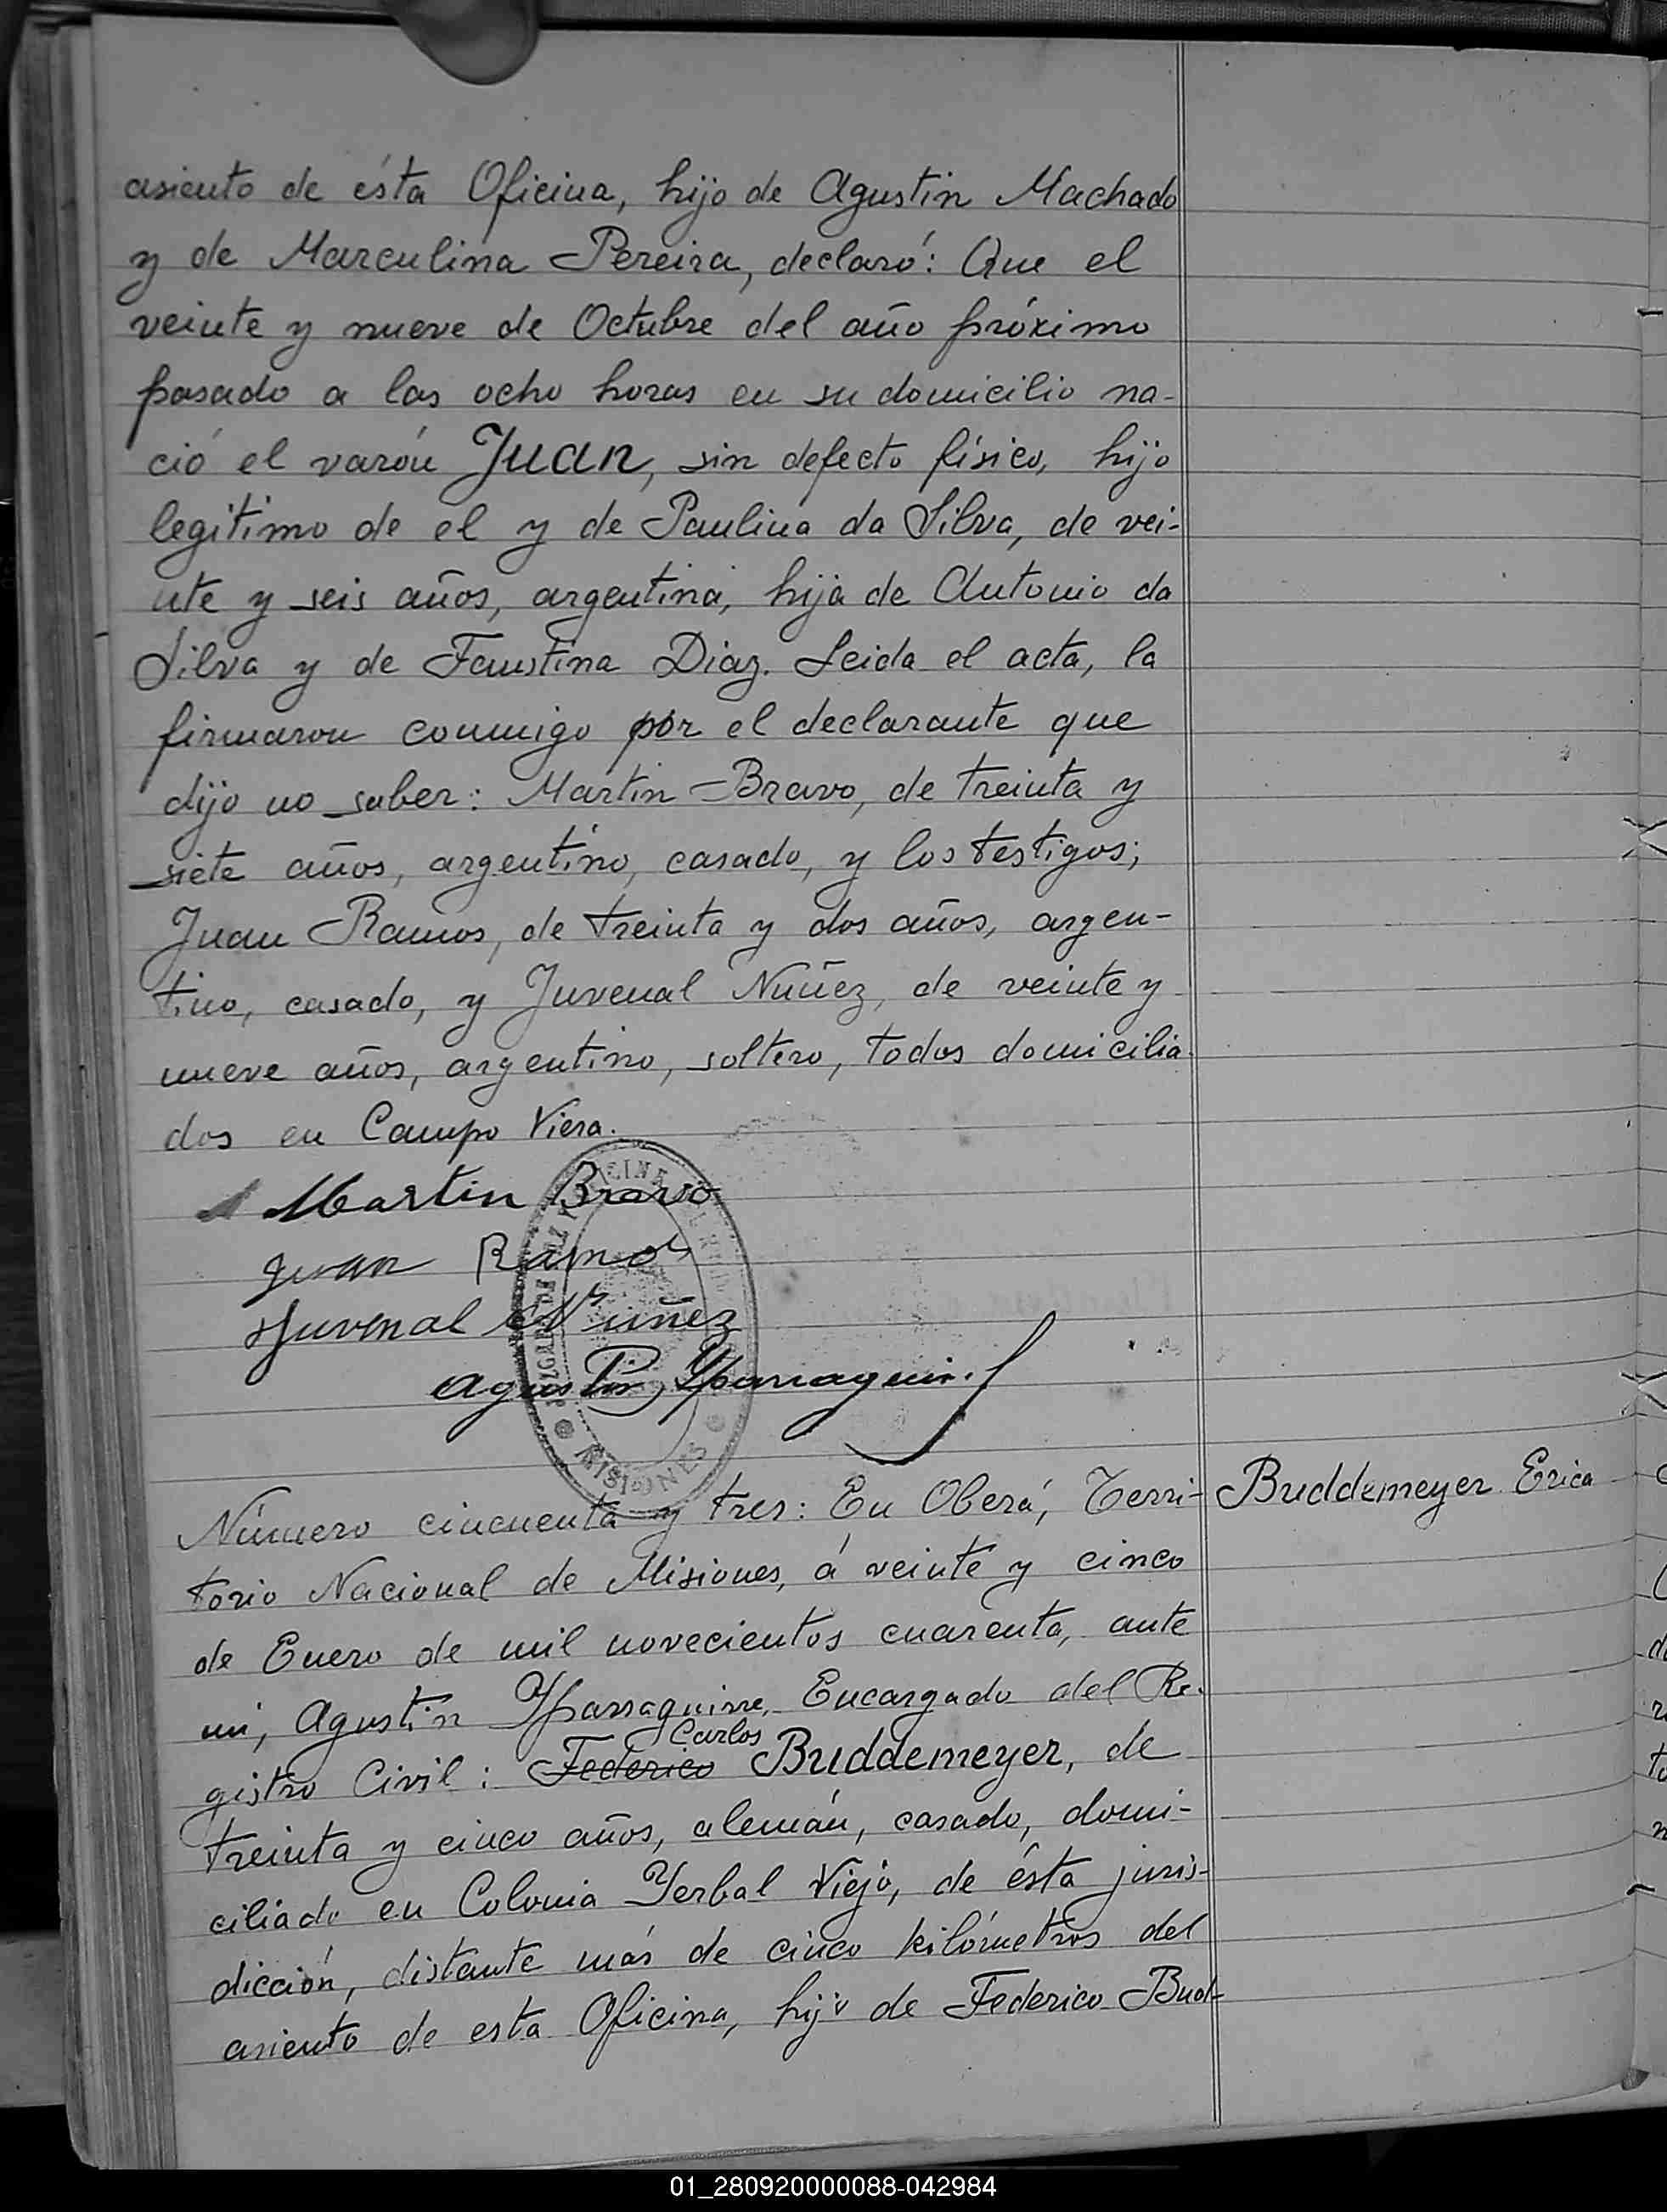 asiento de ésta Oficina, hijo de Agustin Machado
y de Marculina Pereira, declaró: Que el
veinte y nueve de Octubre del año próximo
pasado a las ocho horas en su domicilio na-
ció el varón Juan, sin defecto físico, hijo
legitimo de el y de Paulina da Silva, de vei-
nte y seis años, argentina, hija de Antonio da
Silva y de Faustina Diaz. Leida el acta, la
firmaron conmigo por el declarante que
dijo no saber: Martin Bravo, de treinta y
siete años, argentino, casado, y los testigos;
Juan Ramos, de treinta y dos años, argen-
tino, casado, y Juvenal Nuñez, de veinte y
nueve años, argentino, soltero, todos domicilia-
dos en Campo Viera.
Martin Bravo
Juan Ramos
Juvenal Nuñez
Agustin Yparraguirre
MISIONES
Número cincuenta y tres: En Oberá, Terri-
Buddemeyer Erica
torio Nacional de Misiones, á veinte y cinco
de Enero de mil novecientos cuarenta, ante
mi, Agustin Yparraguirre, Encargado del Re-
Carlos
gistro Civil: Federico Buddemeyer, de
treinta y cinco años, alemán, casado, domi-
ciliado en Colonia Yerbal Viejo, de ésta juris-
dicción, distante más de cinco kilómetros del
asiento de esta Oficina, hijo de Federico Bud-
01_280920000088-042984